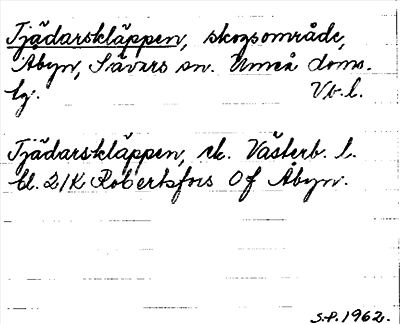 Tjädarskläppen, skogsområde,
Åbyn, Sävars sn. Umeå doms.
lg. Vb.l.
Tjädarskläppen, ek. Västerb. l.
bl. 21K Robertsfors Of Åbyn.
S.P. 1962.